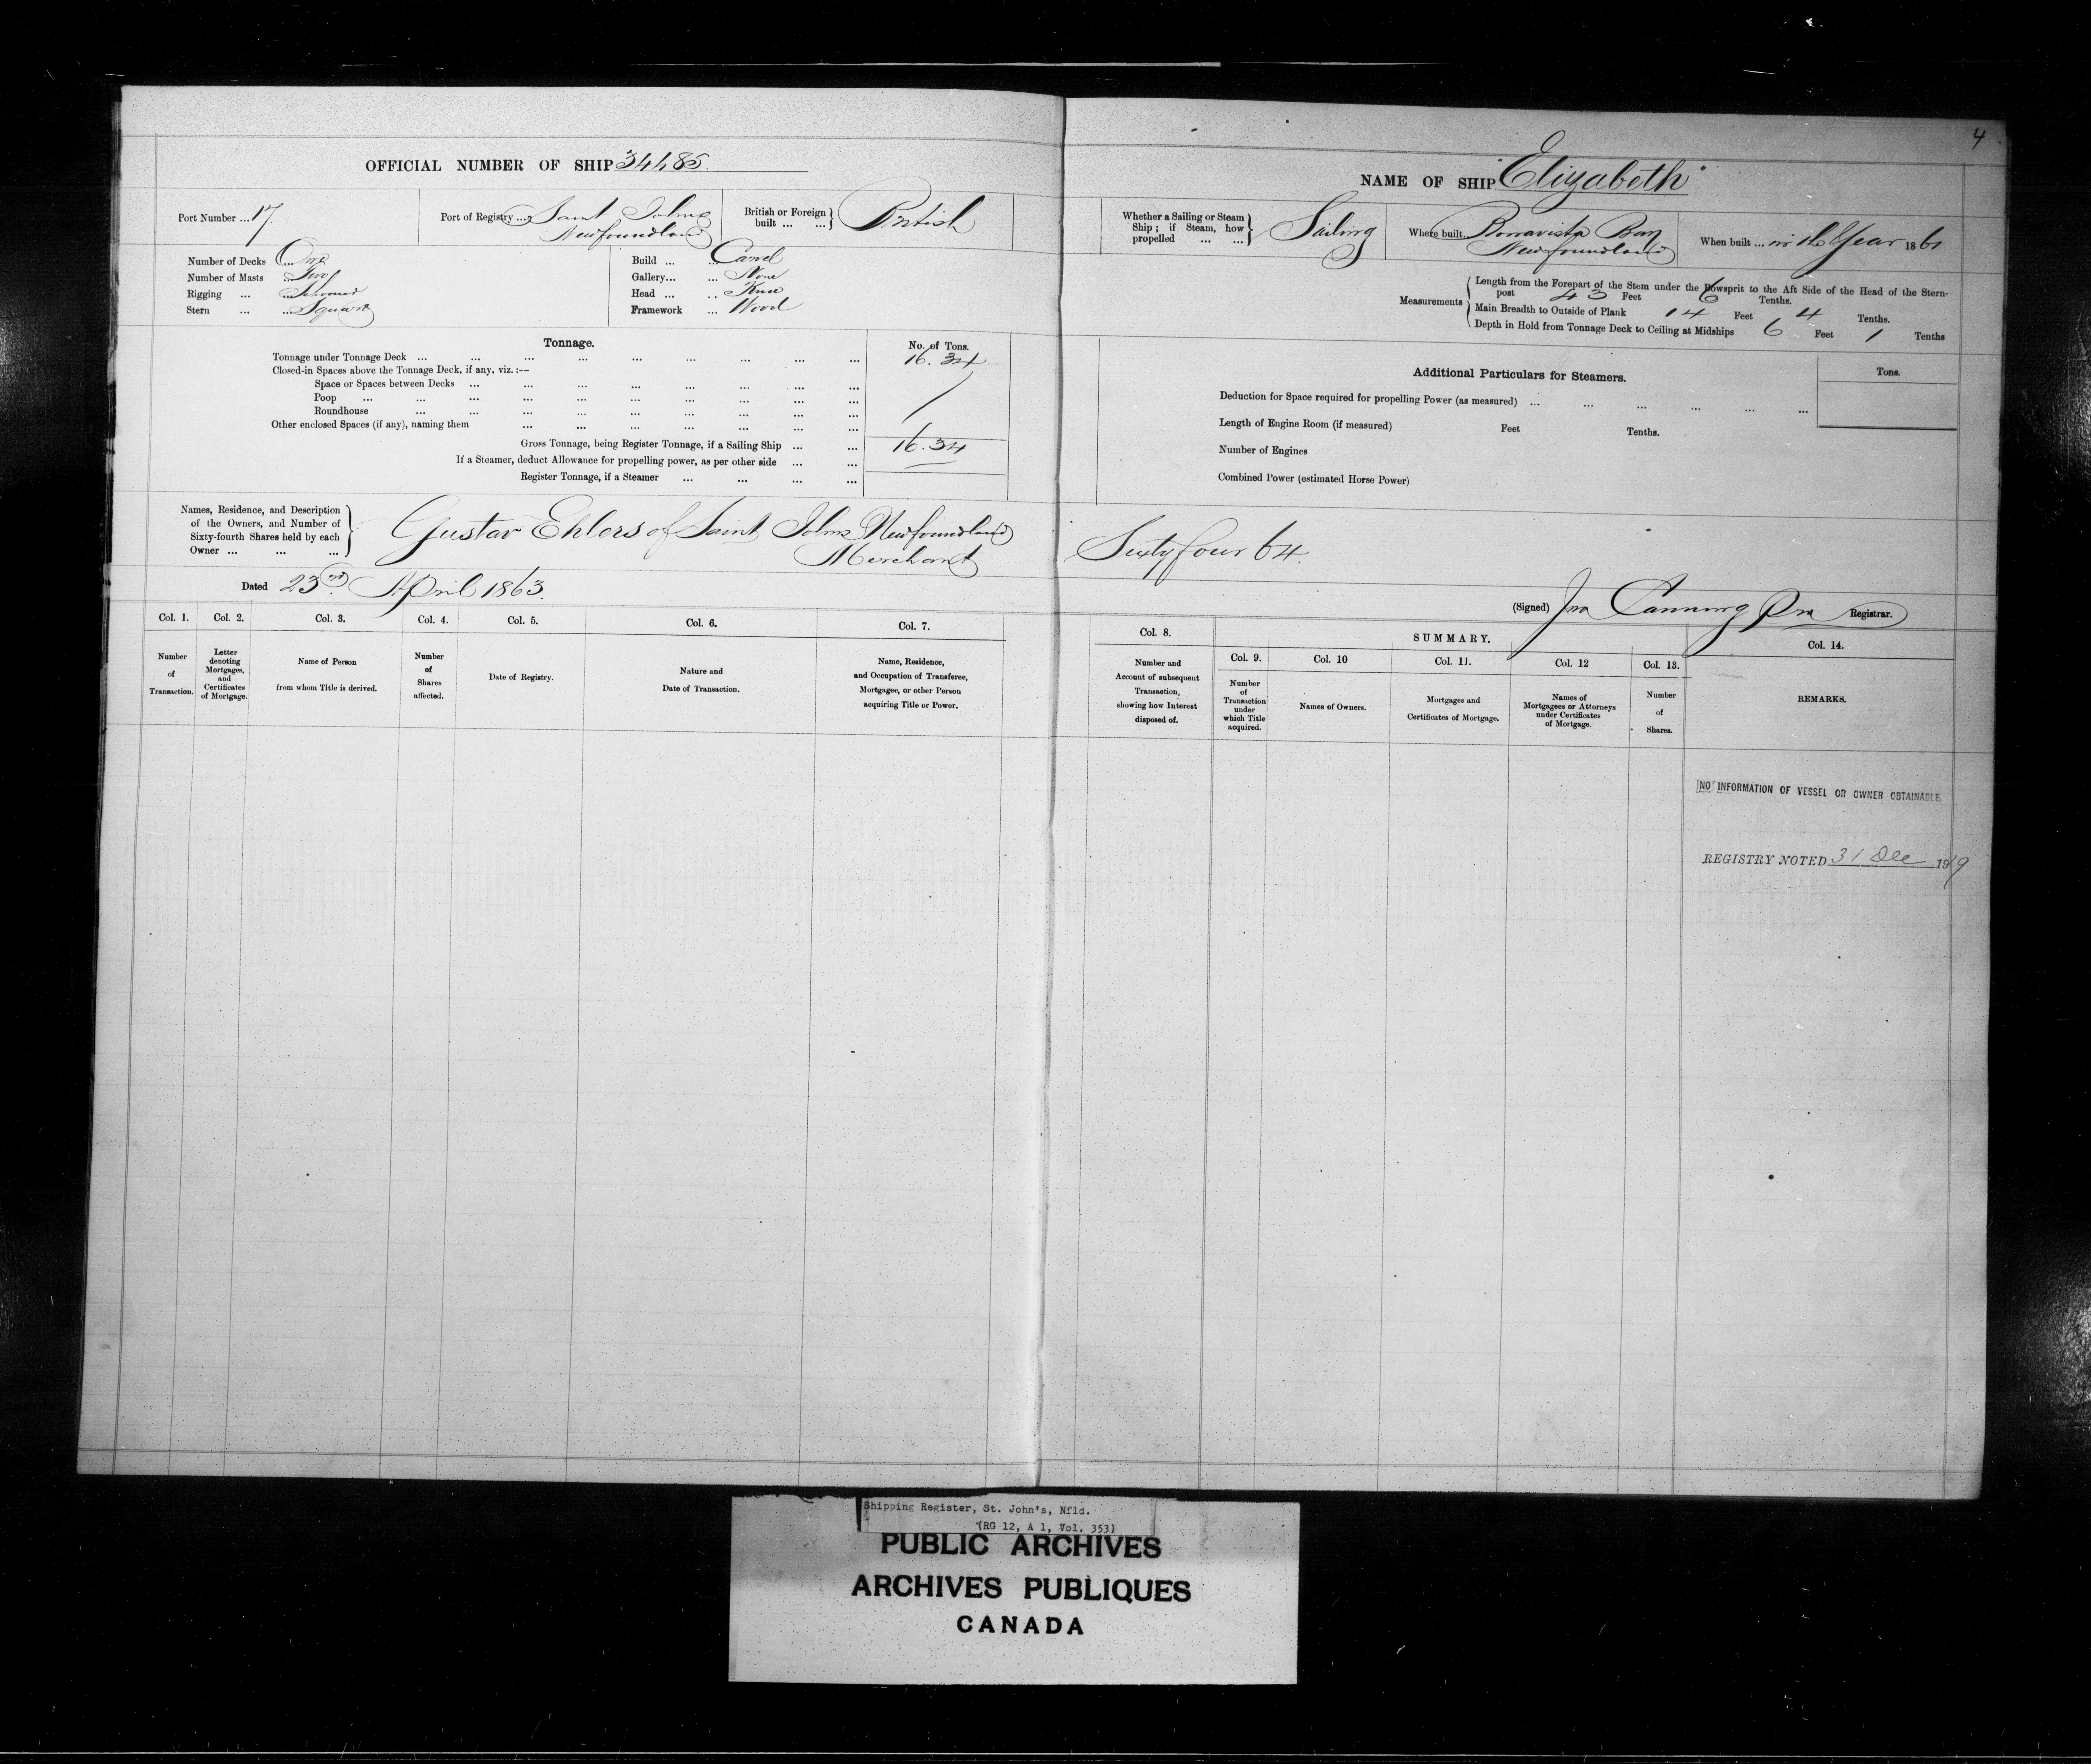 4
OFFICIAL NUMBER OF SHIP 34485.
NAME OF SHIP "Elizabeth"
Port Number ... 17.
Port of Registry ... Saint Johns
Newfoundland
British or Foreign
built ... ...
British
Whether a Sailing or Steam
Ship; if Steam, how
propelled ... ...
Sailing
Where built... Bonavista Bay
Newfoundland
When built ... in the Year 1861
Number of Decks ... One
Number of Masts ... Two
Rigging ... ... Schooner
Stern ... ... Square
Build ... ... Carvel
Gallery... ... None
Head ... ... Knee
Framework ... Wood
Measurements
Length from the Forepart of the Stem under the Bowsprit to the Aft Side of the Head of the Stern-
post 43 Feet 6 Tenths.
Main Breadth to Outside of Plank 14 Feet 4 Tenths.
Depth in Hold from Tonnage Deck to Ceiling at Midships 6 Feet 1 Tenths
Tonnage.
No. of Tons.
Tonnage under Tonnage Deck ... ... ... ... ... ... ... ... ... 16.34
Closed-in Spaces above the Tonnage Deck, if any, viz.:—
Space or Spaces between Decks ... ... ... ... ... ... ... ...
Poop ... ... ... ... ... ... ... ... ... ...
Roundhouse ... ... ... ... ... ... ... ... ...
Other enclosed Spaces (if any), naming them ... ... ... ... ... ... ...
Gross Tonnage, being Register Tonnage, if a Sailing Ship ... ... 16.34
If a Steamer, deduct Allowance for propelling power, as per other side ... ...
Register Tonnage, if a Steamer ... ... ... ...
Additional Particulars for Steamers.
Tons.
Deduction for Space required for propelling Power (as measured) ... ... ... ... ... ...
Length of Engine Room (if measured) Feet Tenths.
Number of Engines
Combined Power (estimated Horse Power)
Names, Residence, and Description
of the Owners, and Number of
Sixty-fourth Shares held by each
Owner ... ... ...
Gustav Ehlers of Saint Johns Newfoundland
Merchant
Sixty four 64.
Dated 23rd. April 1863.
(Signed) Jno Canning Registrar.
Col. 1. Col. 2. Col. 3. Col. 4. Col. 5. Col. 6. Col. 7.
Number
of
Transaction.
Letter
denoting
Mortgages,
and
Certificates
of Mortgage.
Name of Person
from whom Title is derived.
Number
of
Shares
affected.
Date of Registry.
Nature and
Date of Transaction.
Name, Residence,
and Occupation of Transferee,
Mortgagee, or other Person
acquiring Title or Power.
Col. 8.
Number and
Account of subsequent
Transaction,
showing how Interest
disposed of.
SUMMARY.
Col. 9. Col. 10 Col. 11. Col. 12 Col. 13.
Number
of
Transaction
under
which Title
acquired.
Names of Owners.
Mortgages and
Certificates of Mortgage.
Names of
Mortgagees or Attorneys
under Certificates
of Mortgage.
Number
of
Shares.
Col. 14.
REMARKS.
NO INFORMATION OF VESSEL OR OWNER OBTAINABLE.
REGISTRY NOTED 31 Dec 1919
Shipping Register, St. John's, Nfld.
(RG 12, A 1, Vol. 353)
PUBLIC ARCHIVES
ARCHIVES PUBLIQUES
CANADA